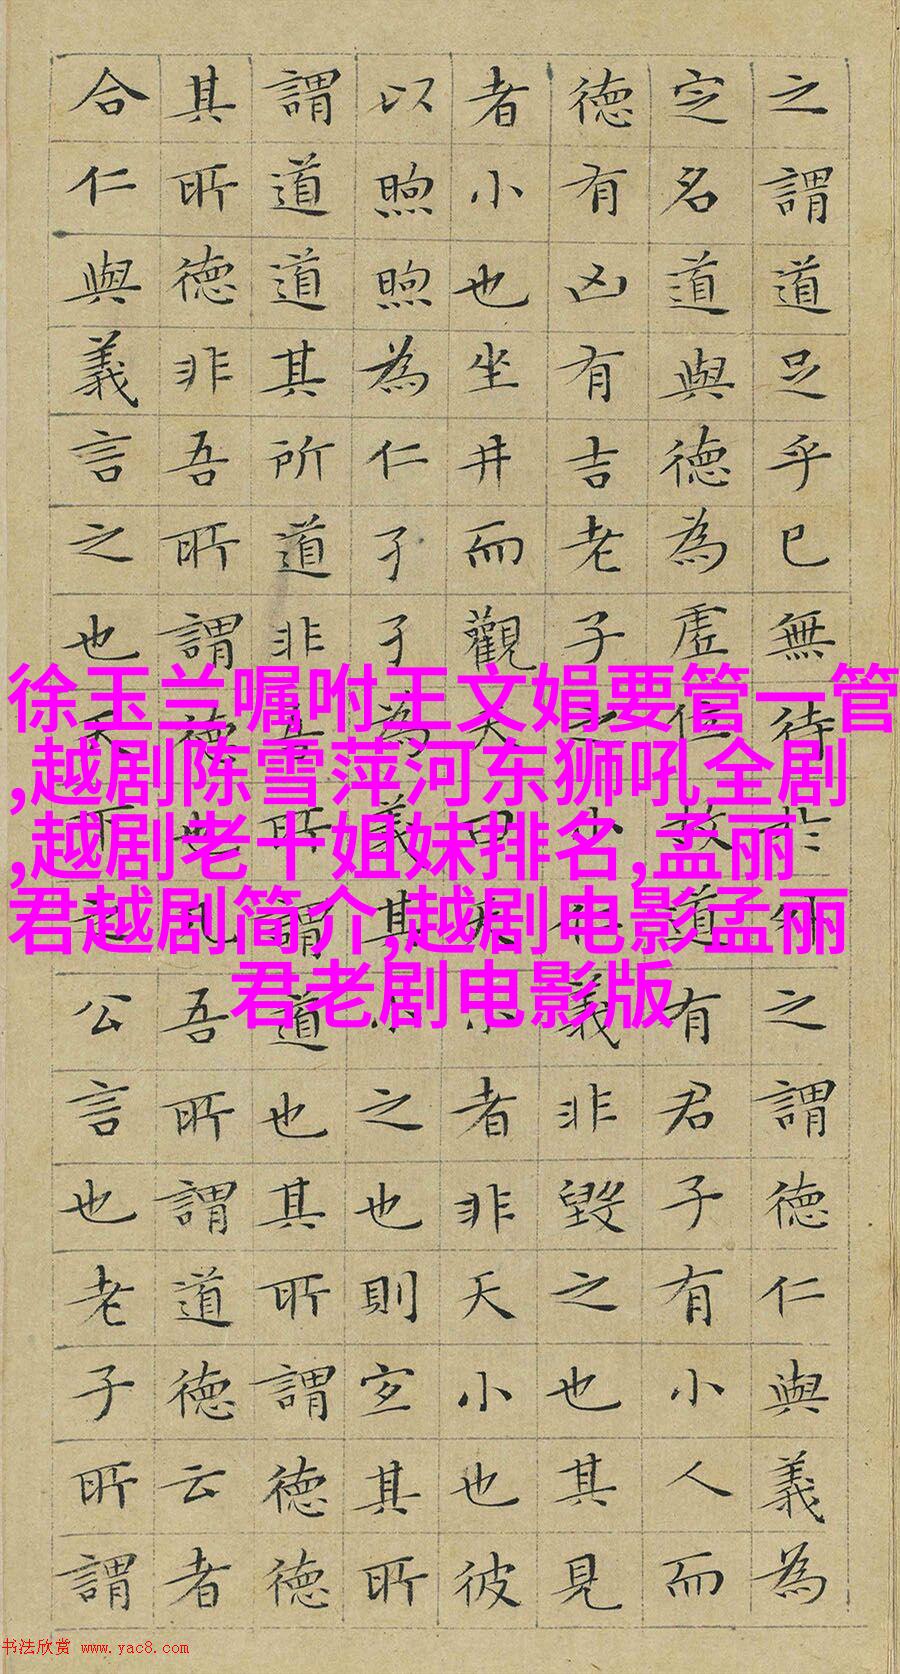 之謂道足乎已無待於外之謂德仁與義為
定名道與德為虛位故道有君子有小人而
德有凶有吉老子之小仁義非毀之也其見
者小也坐井而觀天曰天小者非天小也彼
以煦煦為仁孑孑為義其小之也則宜其所
謂道道其所道非吾所謂道也其所謂德德
其所德非吾所謂德也凡吾所謂道德云者
合仁與義言之也天下之公言也老子所謂
徐玉兰嘱咐王文娟要管一管
,越剧陈雪萍河东狮吼全剧
,越剧老十姐妹排名,孟丽
君越剧简介,越剧电影孟丽
君老剧电影版
书法欣赏 www.yac8.com